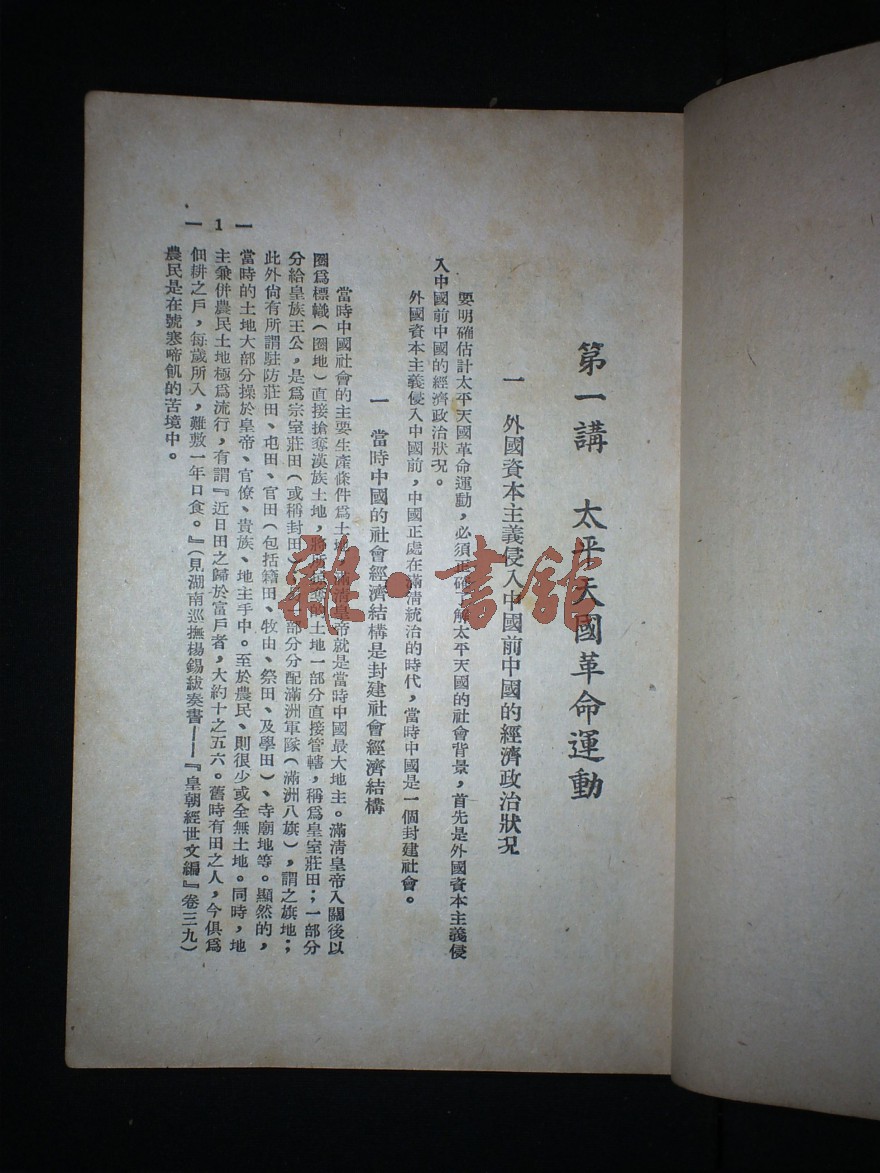 第一講　太平天國革命運動
一　外國資本主義侵入中國前中國的經濟政治狀況
要明確估計太平天國革命運動，必須正確了解太平天國的社會背景，首先是外國資本主義侵
入中國前中國的經濟政治狀況。
外國資本主義侵入中國前，中國正處在滿清統治的時代，當時中國是一個封建社會。
一　當時中國的社會經濟結構是封建社會經濟結構
當時中國社會的主要生產條件爲土地，滿清皇帝就是當時中國最大地主。滿清皇帝入關後以
圈爲標幟（圈地）直接搶奪漢族土地，將所搶奪的土地一部分直接管轄，稱爲皇室莊田；一部分
分給皇族王公，是爲宗室莊田（或稱封田）；一部分分配滿洲軍隊（滿洲八旗），謂之旗地；
此外尙有所謂駐防莊田、屯田、官田（包括籍田、牧由、祭田、及學田）、寺廟地等。顯然的，
當時的土地大部分操於皇帝、官僚、貴族、地主手中。至於農民、則很少或全無土地。同時，地
主兼併農民土地極爲流行，有謂『近日田之歸於富戶者，大約十之五六。舊時有田之人，今俱爲
佃耕之戶，每歲所入，難敷一年口食。』（見湖南巡撫楊錫紱奏書——『皇朝經世文編』卷三九）
農民是在號寒啼飢的苦境中。
— 1 —
雜·書館